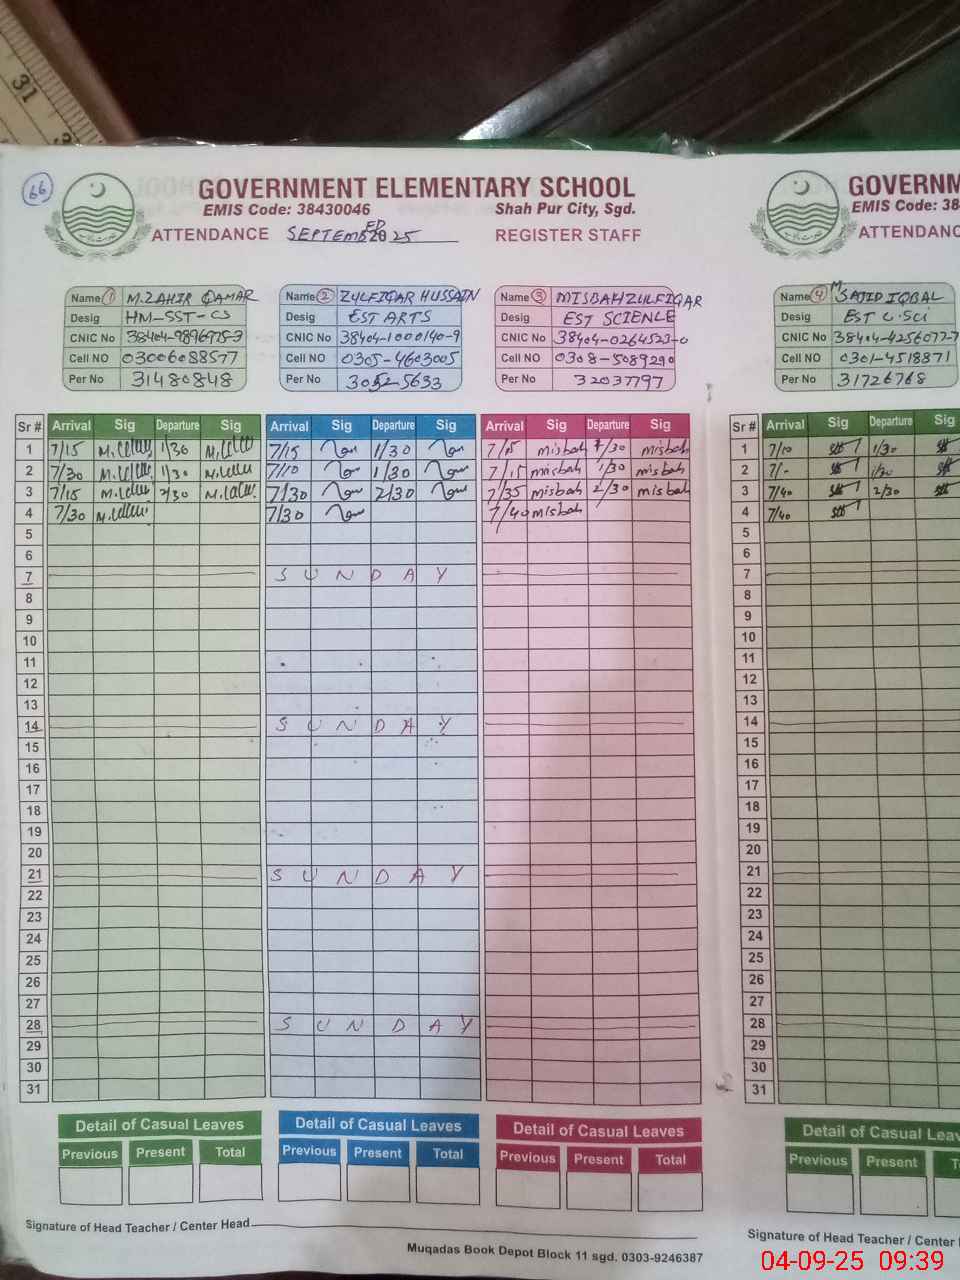 66
GOVERNMENT ELEMENTARY SCHOOL
EMIS Code: 38430046 Shah Pur City, Sgd.
ATTENDANCE SEPTEMBER 2025 REGISTER STAFF
Name 1 M.ZAHIR QAMAR
Desig HM-SST-CS
CNIC No 38404-9896975-3
Cell NO 03006088577
Per No 31480848
Name 2 ZULFIQAR HUSSAIN
Desig EST ARTS
CNIC No 38404-1000140-9
Cell NO 0305-4603005
Per No 3052-5633
Name 3 MISBAH ZULFIQAR
Desig EST SCIENCE
CNIC No 38404-0264523-0
Cell NO 0308-5089290
Per No 32037797
GOVERNM
EMIS Code: 38
ATTENDANC
Name 4 M SAJID IQBAL
Desig EST C.SCI
CNIC No 38404-4256077-7
Cell NO 0301-4518871
Per No 31726768
Sr # Arrival Sig Departure Sig Arrival Sig Departure Sig Arrival Sig Departure Sig
1 7/15 1/30 7/15 1/30 7/15 misbah 1/30 misbah
2 7/30 1/30 7/10 1/30 7/15 misbah 1/30 misbah
3 7/15 2/30 7/30 2/30 7/35 misbah 2/30 misbah
4 7/30 7/30 7/40 misbah
5
6
7 SUNDAY
8
9
10
11
12
13
14 SUNDAY
15
16
17
18
19
20
21 SUNDAY
22
23
24
25
26
27
28 SUNDAY
29
30
31
Sr # Arrival Sig Departure Sig
1 7/10 1/30
2 7/- 1/30
3 7/40 2/30
4 7/40
5
6
7
8
9
10
11
12
13
14
15
16
17
18
19
20
21
22
23
24
25
26
27
28
29
30
31
Detail of Casual Leaves Detail of Casual Leaves Detail of Casual Leaves
Previous Present Total Previous Present Total Previous Present Total
Detail of Casual Leav
Previous Present T
Signature of Head Teacher / Center Head
Muqadas Book Depot Block 11 sgd. 0303-9246387
Signature of Head Teacher / Center
04-09-25 09:39
31